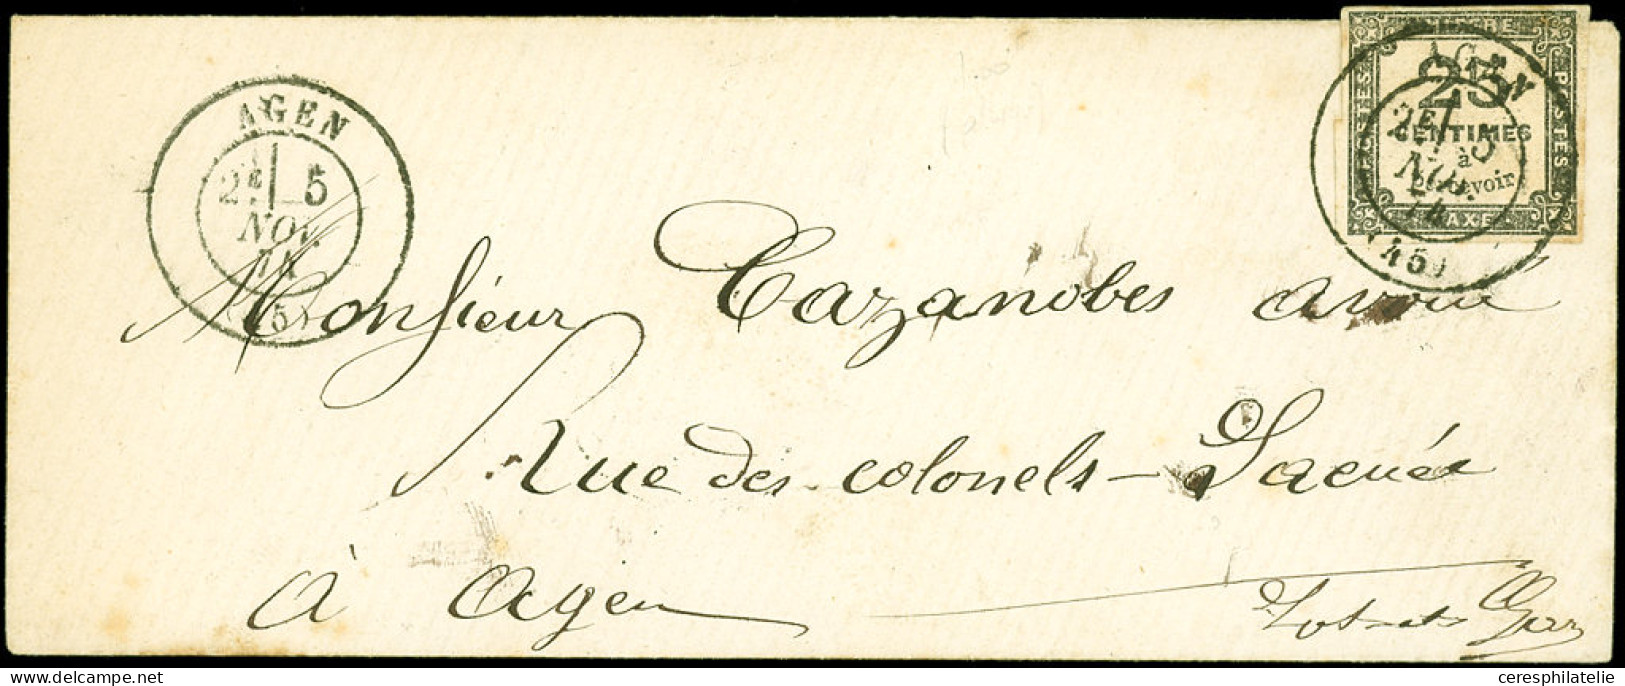 AGEN
2E 5
NOV.
74
(45)
CHIFFRE
POSTES
TAXE
25
CENTIMES
à
percevoir
AGEN
2E 5
NOV.
74
(45)
Monsieur Cazanobes avoué
Rue des colonels-Lacuée
à Agen
www.delcampe.net
ceresphilatelie